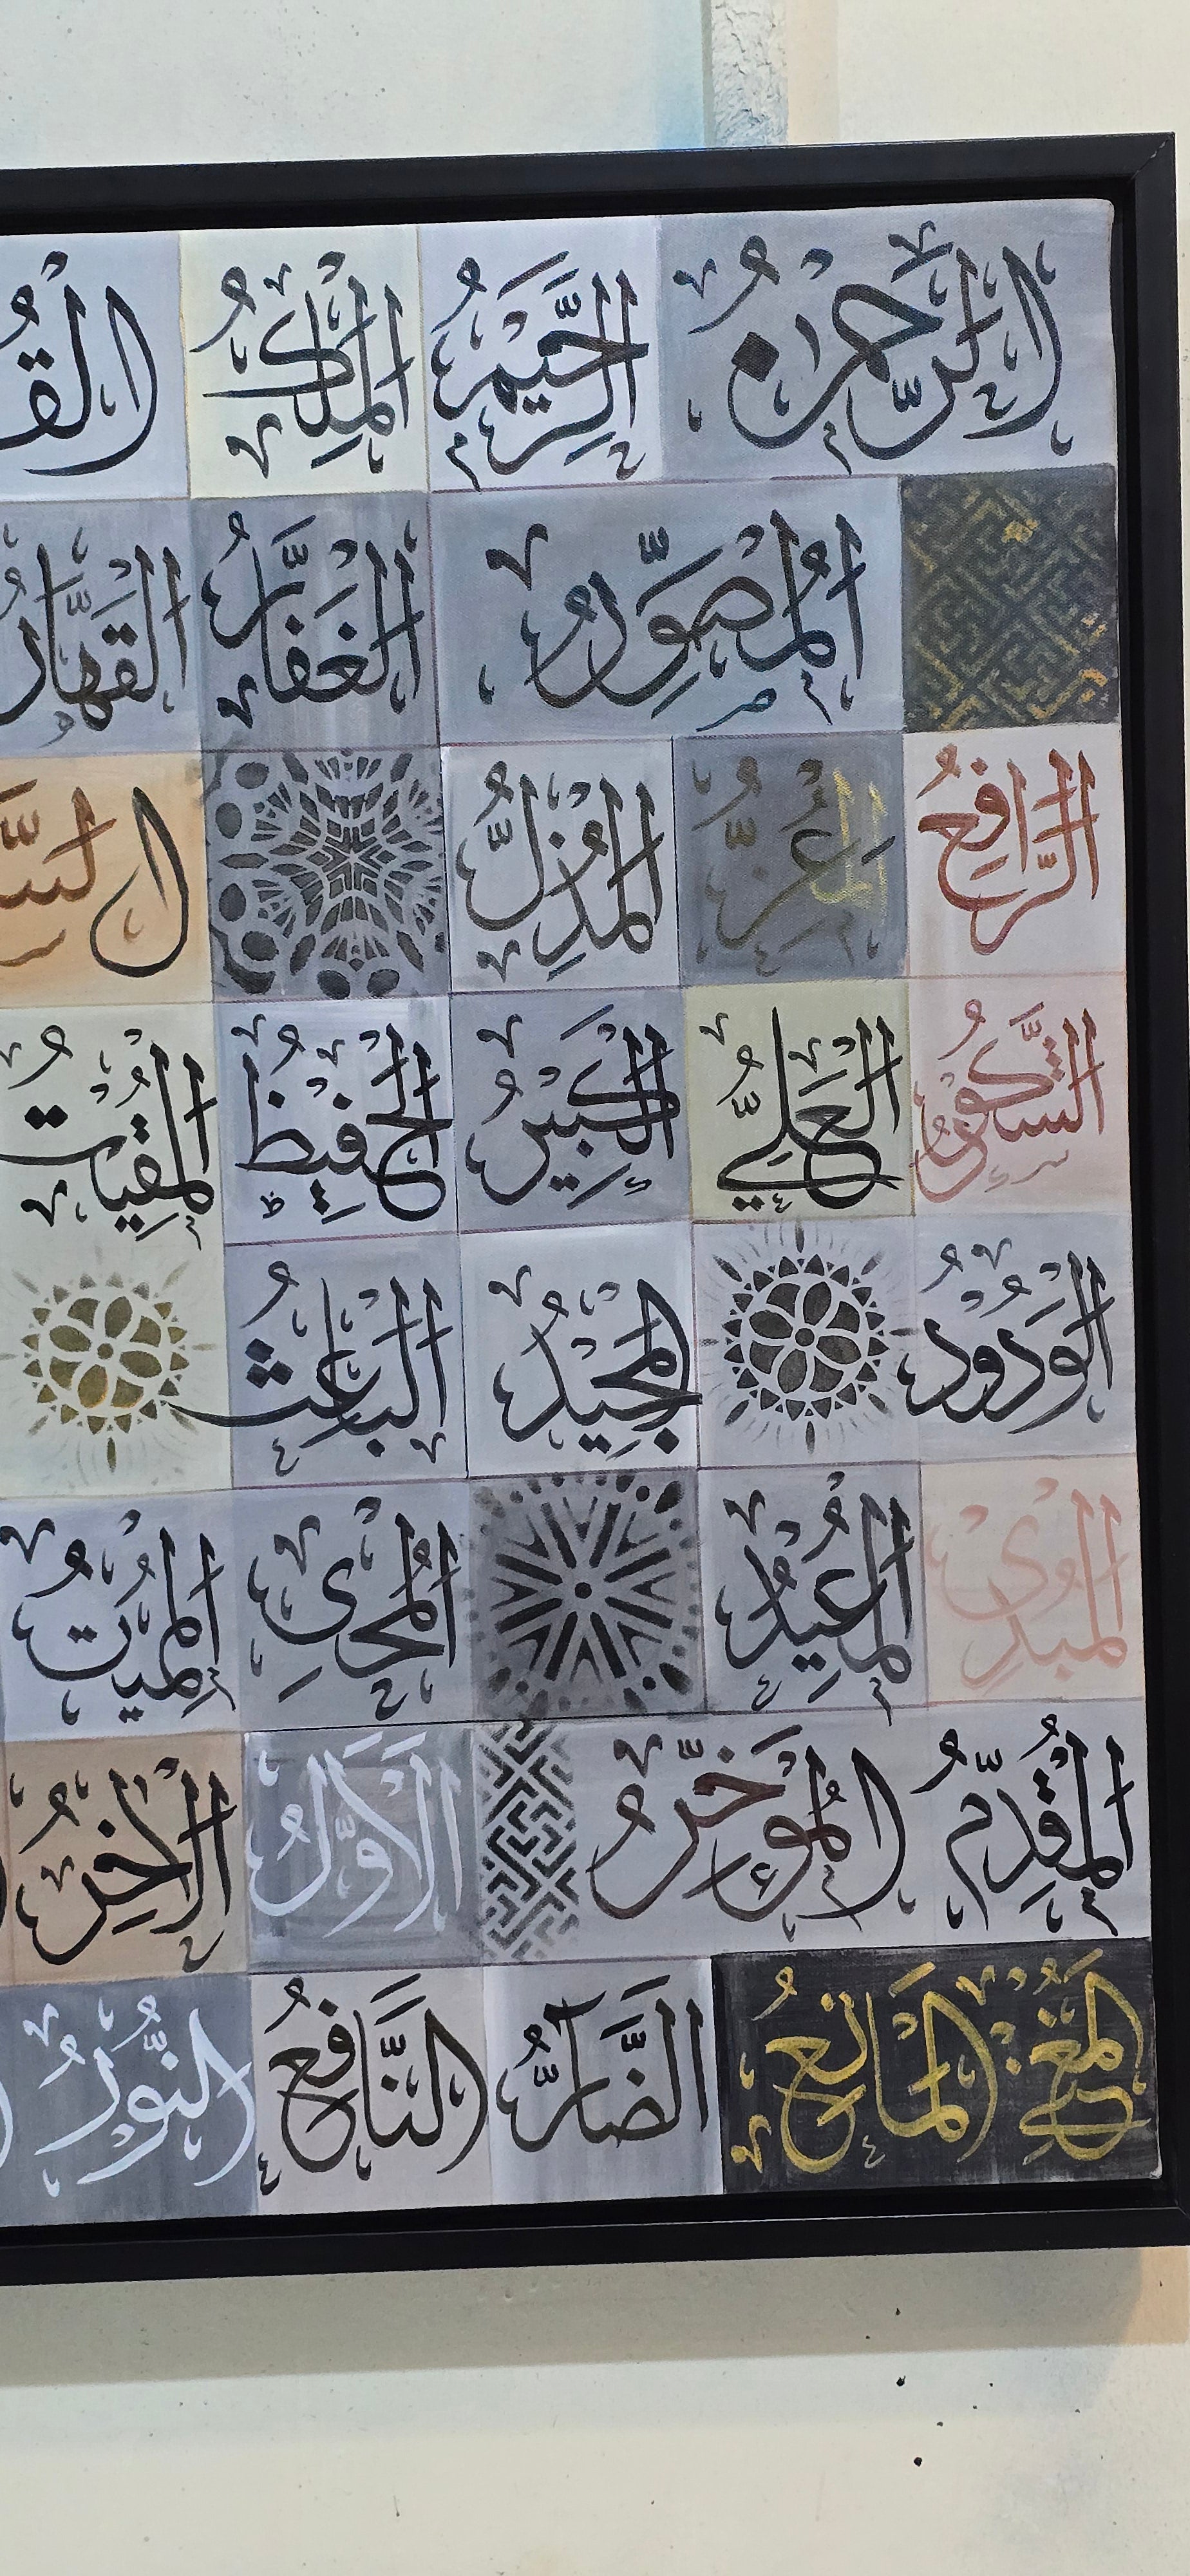 الرَّحْمٰنُ الرَّحِيْمُ المَلِكُ
المُصَوِّرُ الغَفَّارُ القَهَّارُ
الرَّافِعُ المُعِزُّ المُذِلُّ
الشَّكُوْرُ العَلِيُّ الكَبِيْرُ الحَفِيْظُ المُقِيْتُ
الوَدُوْدُ المَجِيْدُ البَاعِثُ
المُبْدِئُ المُعِيْدُ المُحْيِى المُمِيْتُ
المُقَدِّمُ المُؤَخِّرُ الاَوَّلُ الآخِرُ
المُغْنِي المَانِعُ الضَّآرُّ النَّافِعُ النُّوْرُ